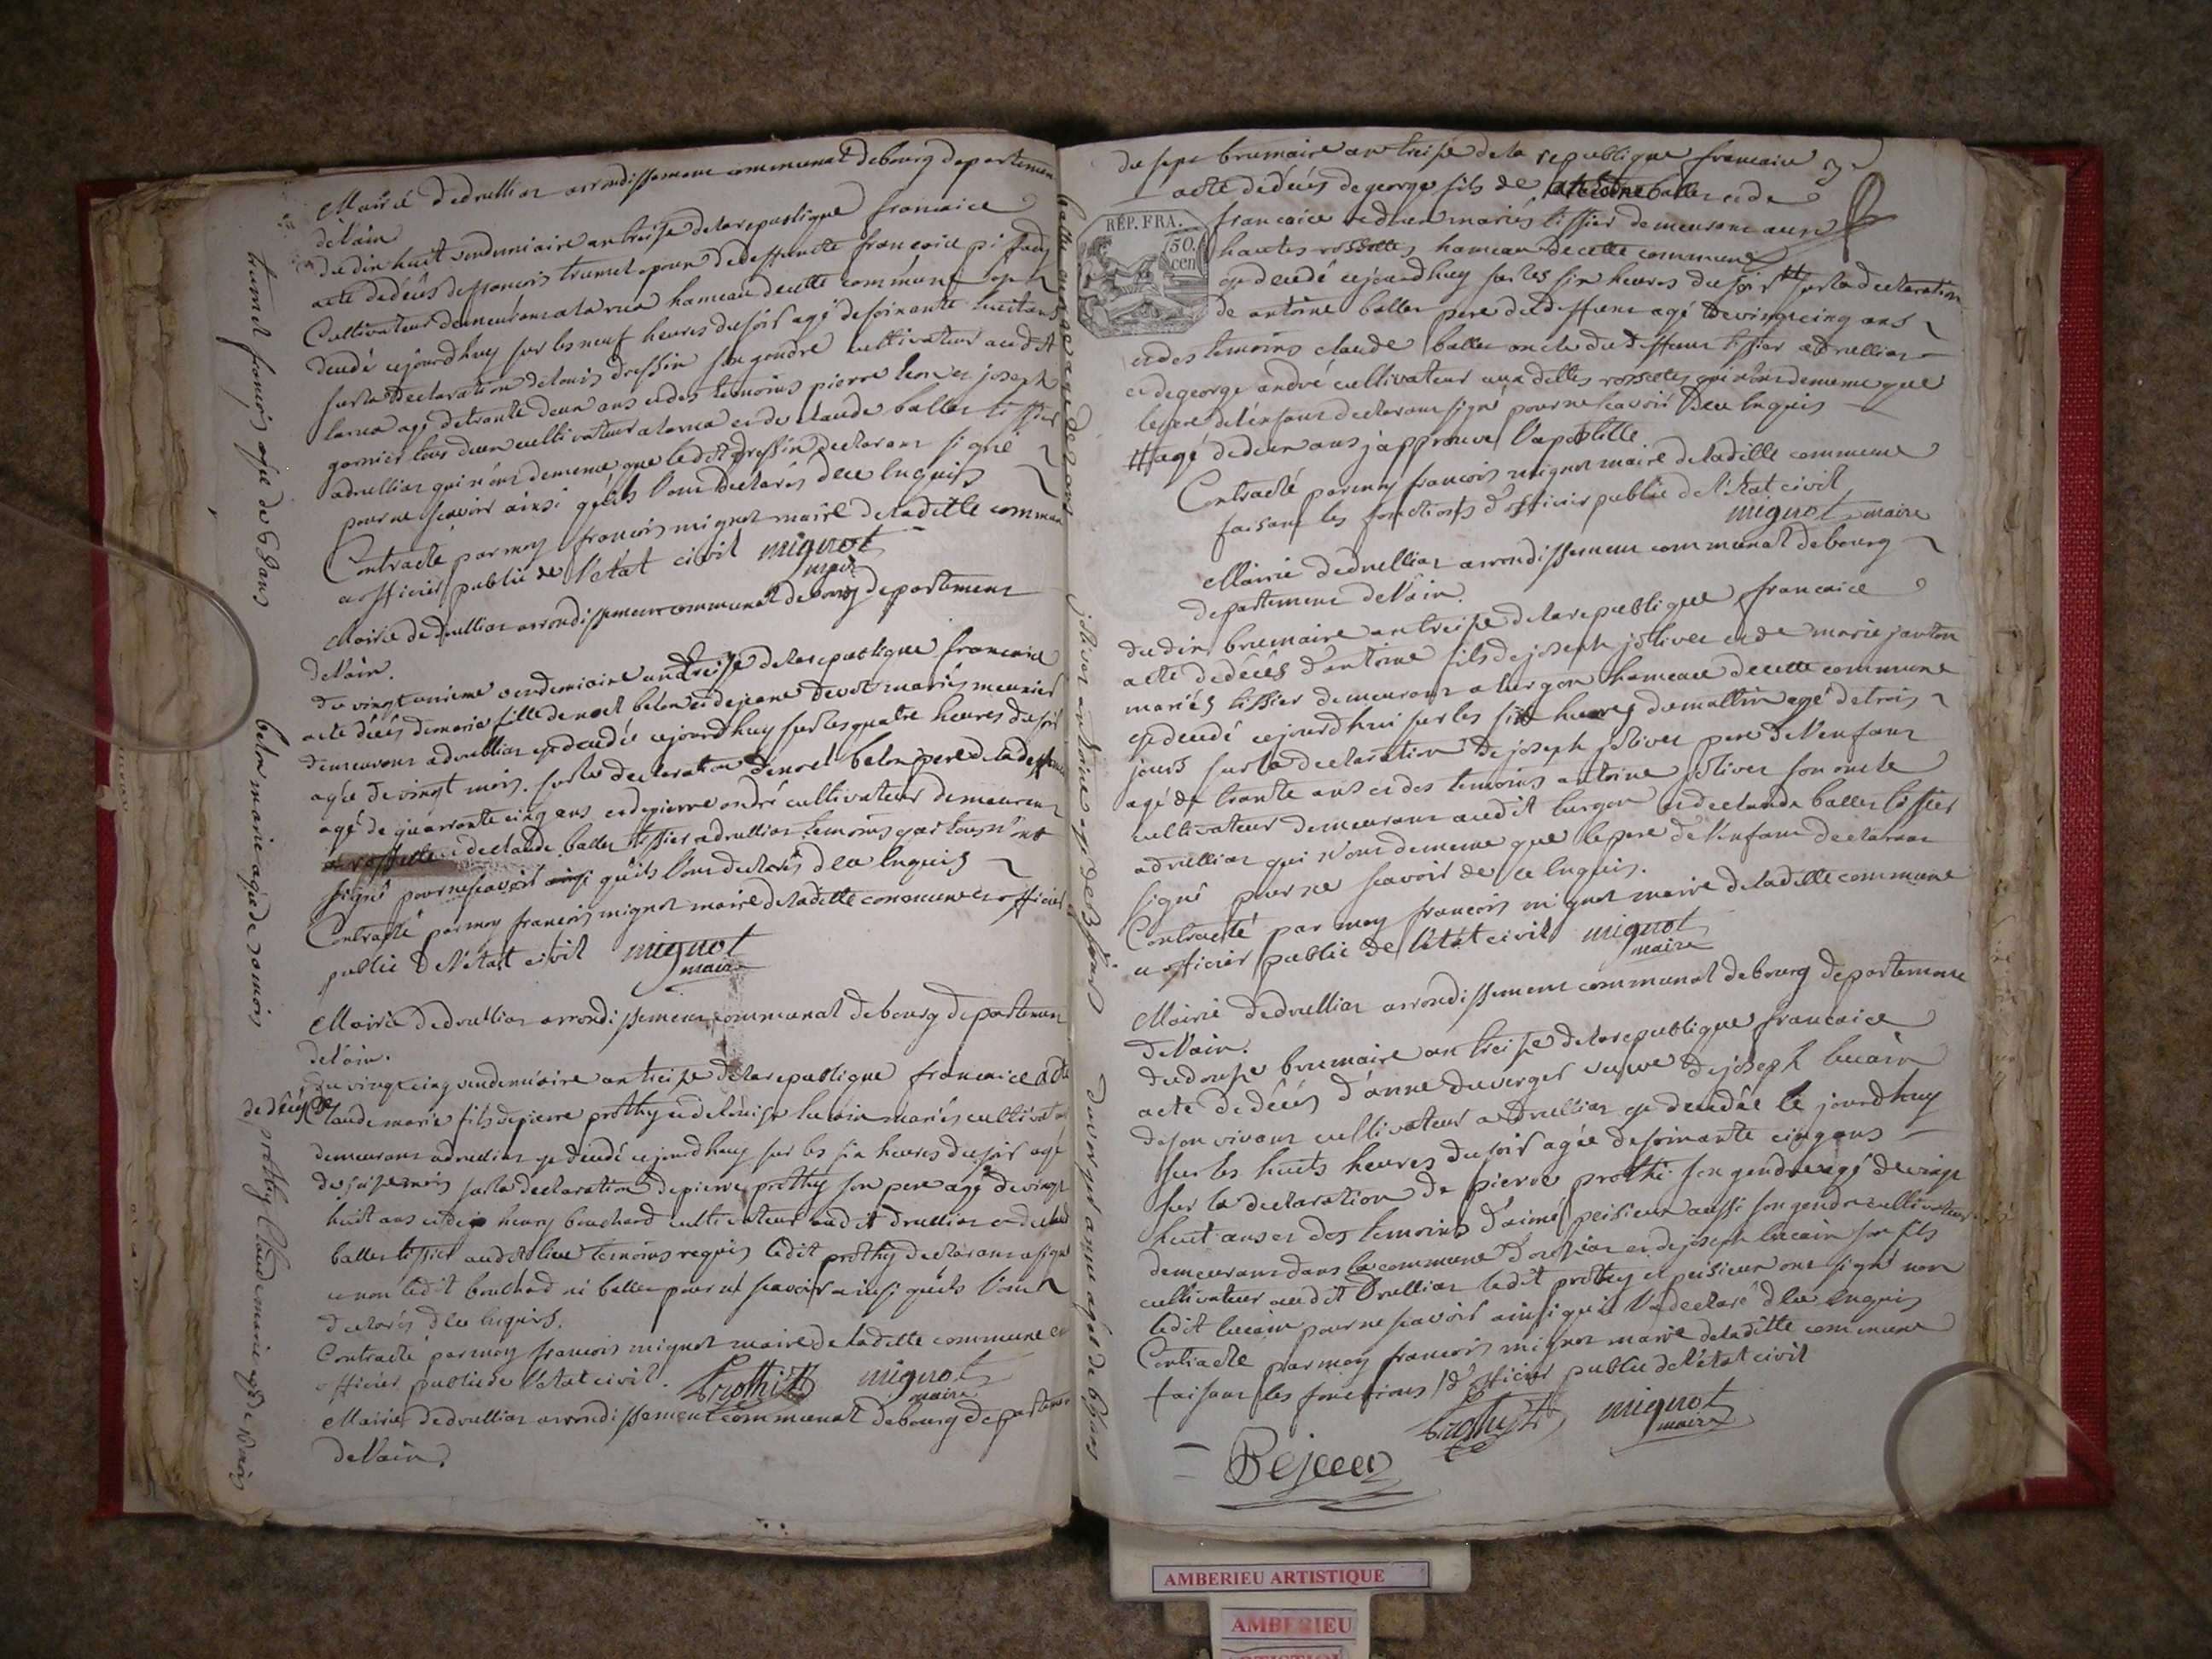 Mairie dedruilliaz arrondissement communal debourg departement
delain
du dix huit vendemiaire an treise delarepublique francaice
acte dedécès defrancois trumel epoux dedeffuncte francoise
Cultivateur demeurant alarua hameau decette commune
decedé cejourdhuy sur les neuf heures dusoir agé desoixante huit ans
surla declaration delouis dressin son gendre cultivateur audit
larua agé detrante deux ans et des temoins pierre leon et joseph
garnier tous deux cultivateur alarua et de claude ballet tissier
adruilliaz qui nont dememe que ledit dressin declarant signé
pour ne scavoir ainsi quils lont declarés dece enquis
Contracté par moy francois mignot maire deladitte commune
et officier public de l'état civil mignot
maire
Mairie dedruilliaz arrondissement communal debourg departement
delain.
du vingtunieme vendemiaire an treise delarepublique francaice
acte décés demarie fille denoel belon et dejeane devot mariés meunier
demeurant adruilliaz decedé cejourdhuy sur les quatre heures du soir
agée devingt mois. sur la declaration denoel belon pere dela deffuncte
agé de quarante cinq ans et depierre andré cultivateur demeurent
a rossette et declaude ballet tissier adruilliaz temoins qui tous nont
signé pour ne scavoir ainsi quils lont declarés dece enquis
Contracté par moy francois mignot maire deladitte commune et officier
public de l'état civil mignot
maire
Mairie dedruilliaz arrondissement communal debourg departement
delain.
du vingt cinq vendemiaire an treise delarepublique francaice acte
dedécés de Claude marie fils depierre prothy et delouise lucain mariés cultivateur
demeurant adruilliaz decedé cejourdhuy sur les six heures du soir agé
de seise mois surla declaration depierre prothy son pere agé devingt
huit ans et de henry bouchard cultivateur audit druilliaz et declaude
ballet tissier audit lieu temoins requis ledit prothy declarant a signé
et non ledit bouchard ni ballet pour ne scavoir ainsi quils lont
declarés dece enquis.
Contracté par moy francois mignot maire de laditte commune et
officier public de l'état civil. Prothi mignot
maire
Mairie dedruilliaz arrondissement communal debourg departement
delain.
trumel francois agé de 68 ans
belon marie agée de 20 mois
prothy Claude marie agé de 16 mois
du sept brumaire an treise dela republique francaice
acte dedécés degeorge fils de antoine ballet et de
RÉP. FRA.
50.
cen
francoise mariés tissier demeurant aux
hautes rossettes hameau decette commune
decedé cejourdhuy sur les six heures dusoir # surla declaration
de antoine ballet pere dudeffunt agé devingt cinq ans
et des temoins claude ballet oncle du deffunt tissier adruilliaz
et degeorge andré cultivateur aux dittes rossettes qui nont dememe que
lepere delenfant declarant signé pour ne scavoir dece enquis
# agé dedeux ans j'approuve l'apostille.
Contracté par moy francois mignot maire deladitte commune
faisant les fonctions d'officier public de l'état civil
mignot maire
Mairie dedruilliaz arrondissement communal debourg
departement delain.
dudix brumaire an treise delarepublique francaice
acte dedécés d'antoine fils dejoseph jolivet et de marie janton
mariés tissier demeurant a turgon hameau decette commune
decedé cejourdhui sur les six heures dumattin agé detrois
jours surla declaration de joseph jolivet pere delenfant
agé de trante ans et des temoins antoine jolivet son oncle
cultivateur demeurant audit turgon et declaude ballet tissier
adruilliaz qui nont dememe que lepere delenfant declarant
signé pour ne scavoir de ce enquis.
Contracté par moy francois mignot maire deladitte commune
et officier public de l'état civil mignot
maire
Mairie dedruilliaz arrondissement communal debourg departement
delain.
dudouse brumaire an treise delarepublique francaice
acte dedécés d'anne duverger veuve dejoseph lucain
deson vivant cultivateur adruilliaz decedée le jourdhuy
sur les huits heures du soir agée desoixante cinq ans
sur la declaration de pierre prothi son gendre agé devingt
huit ans et des temoins d'aimé peisieux aussi son gendre cultivateur
demeurant dans la commune et dejoseph lucain son fils
cultivateur audit druilliaz ledit prothy et peisieux ont signé non
ledit lucain pour ne scavoir ainsi quil la declaré dece enquis
Contracté par moy francois mignot maire deladitte commune
faisant les fonctions d'officier public de l'état civil
Prothi mignot
maire
jolivet antoine agé de 3 jours
duverger anne agée de 65 ans
AMBERIEU ARTISTIQUE
AMBERIEU